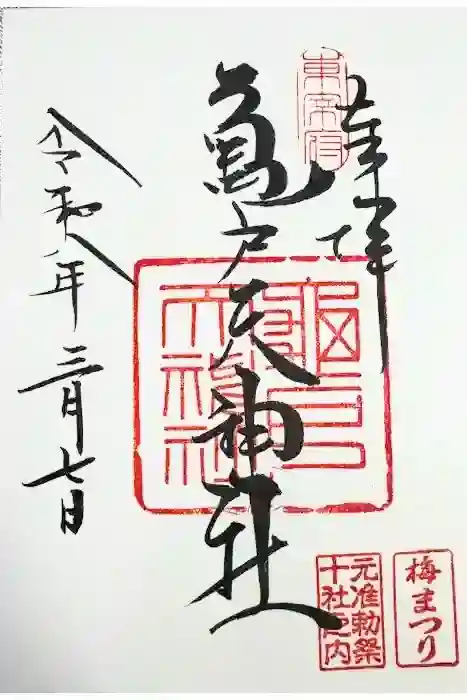 奉拝
東宰府
亀戸天神社
令和八年三月七日
梅まつり
元准勅祭
十社之内